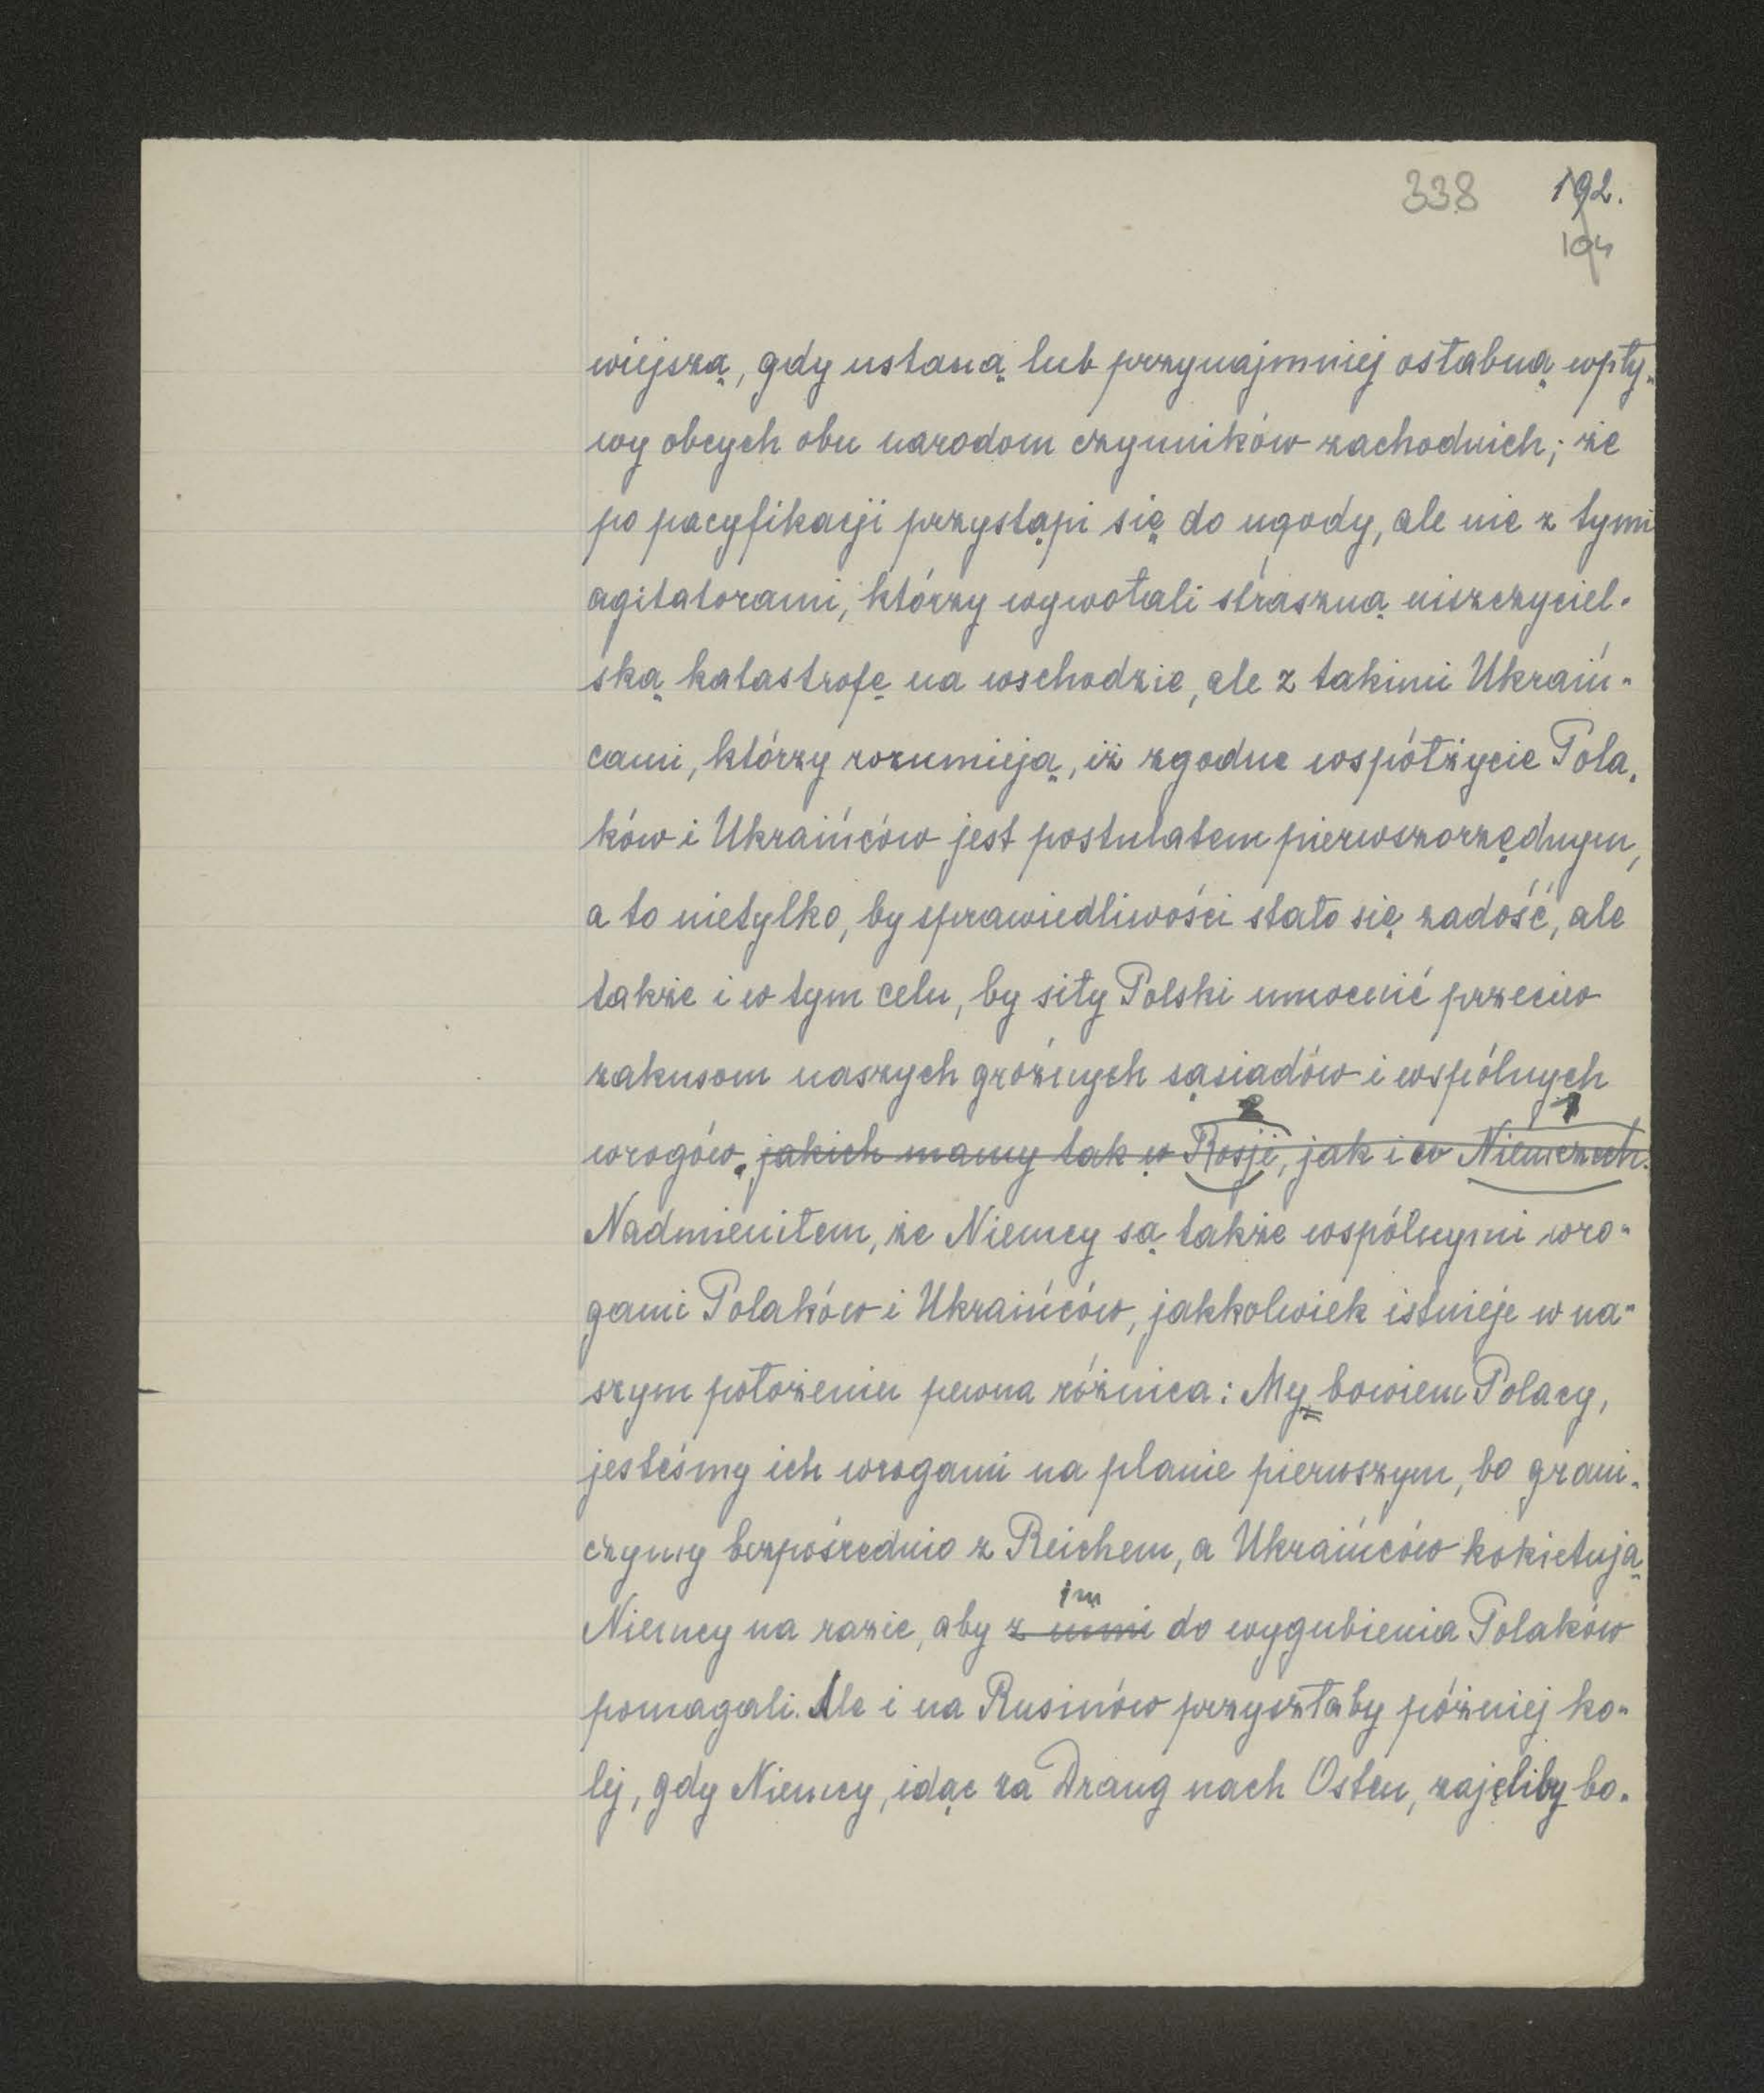 338 192.
194
wiejszą, gdy ustaną lub przynajmniej osłabną wpły-
wy obcych obu narodom czynników zachodnich; że
po pacyfikacji przystąpi się do ugody, ale nie z tymi
agitatorami, którzy wywołali straszną niszczyciel-
ską katastrofę na wschodzie, ale z takimi Ukraiń-
cami, którzy rozumieją, iż zgodne współżycie Pola-
ków i Ukraińców jest postulatem pierwszorzędnym,
a to nietylko, by sprawiedliwości stało się zadość, ale
także i w tym celu, by siły Polski umocnić przeciw
zakusom naszych groźnych sąsiadów i wspólnych
2 1
wrogów. jakich mamy tak w Rosji, jak i w Niemczech.
Nadmieniłem, że Niemcy są także wspólnymi wro-
gami Polaków i Ukraińców, jakkolwiek istnieje w na-
szym położeniu pewna różnica: My bowiem Polacy,
jesteśmy ich wrogami na planie pierwszym, bo grani-
czymy bezpośrednio z Reichem, a Ukraińców kokietują
im
Niemcy na razie, aby z nimi do wygubienia Polaków
pomagali. Ale i na Rusinów przyszłaby później ko-
lej, gdy Niemcy, idąc za Drang nach Osten, zajęliby bo-